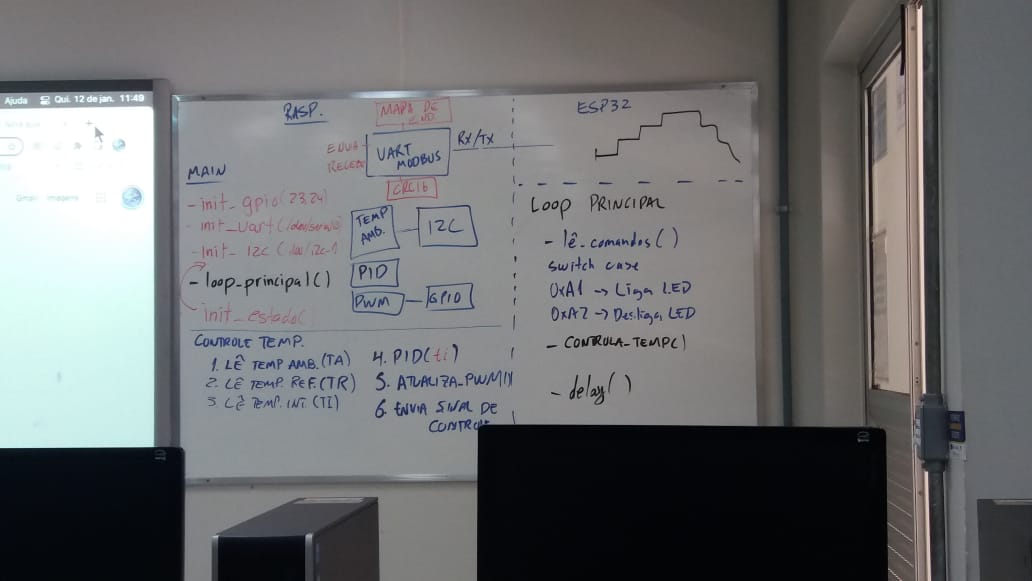 Ajuda Qui. 12 de jan. 11:49
Gmail Imagens
RASP.
MAPA DE
END.
ENVIA
RECEBE
UART
MODBUS
Rx/Tx
CRC16
MAIN
- init_gpio(23,24)
- init_uart(/dev/serial0)
- Init_I2C (/dev/i2c-1
- loop_principal()
init_estado(
TEMP
AMB.
I2C
PID
PWM
GPIO
CONTROLE TEMP.
1. LÊ TEMP AMB.(TA)
2. LÊ TEMP. REF.(TR)
3. LÊ TEMP. INT.(TI)
4. PID(ti)
5. ATUALIZA_PWM()
6. ENVIA SINAL DE
CONTROLE
ESP32
LOOP PRINCIPAL
- lê_comandos()
switch case
0xA1 -> Liga LED
0xA2 -> Desliga LED
- CONTROLA_TEMP()
- delay()